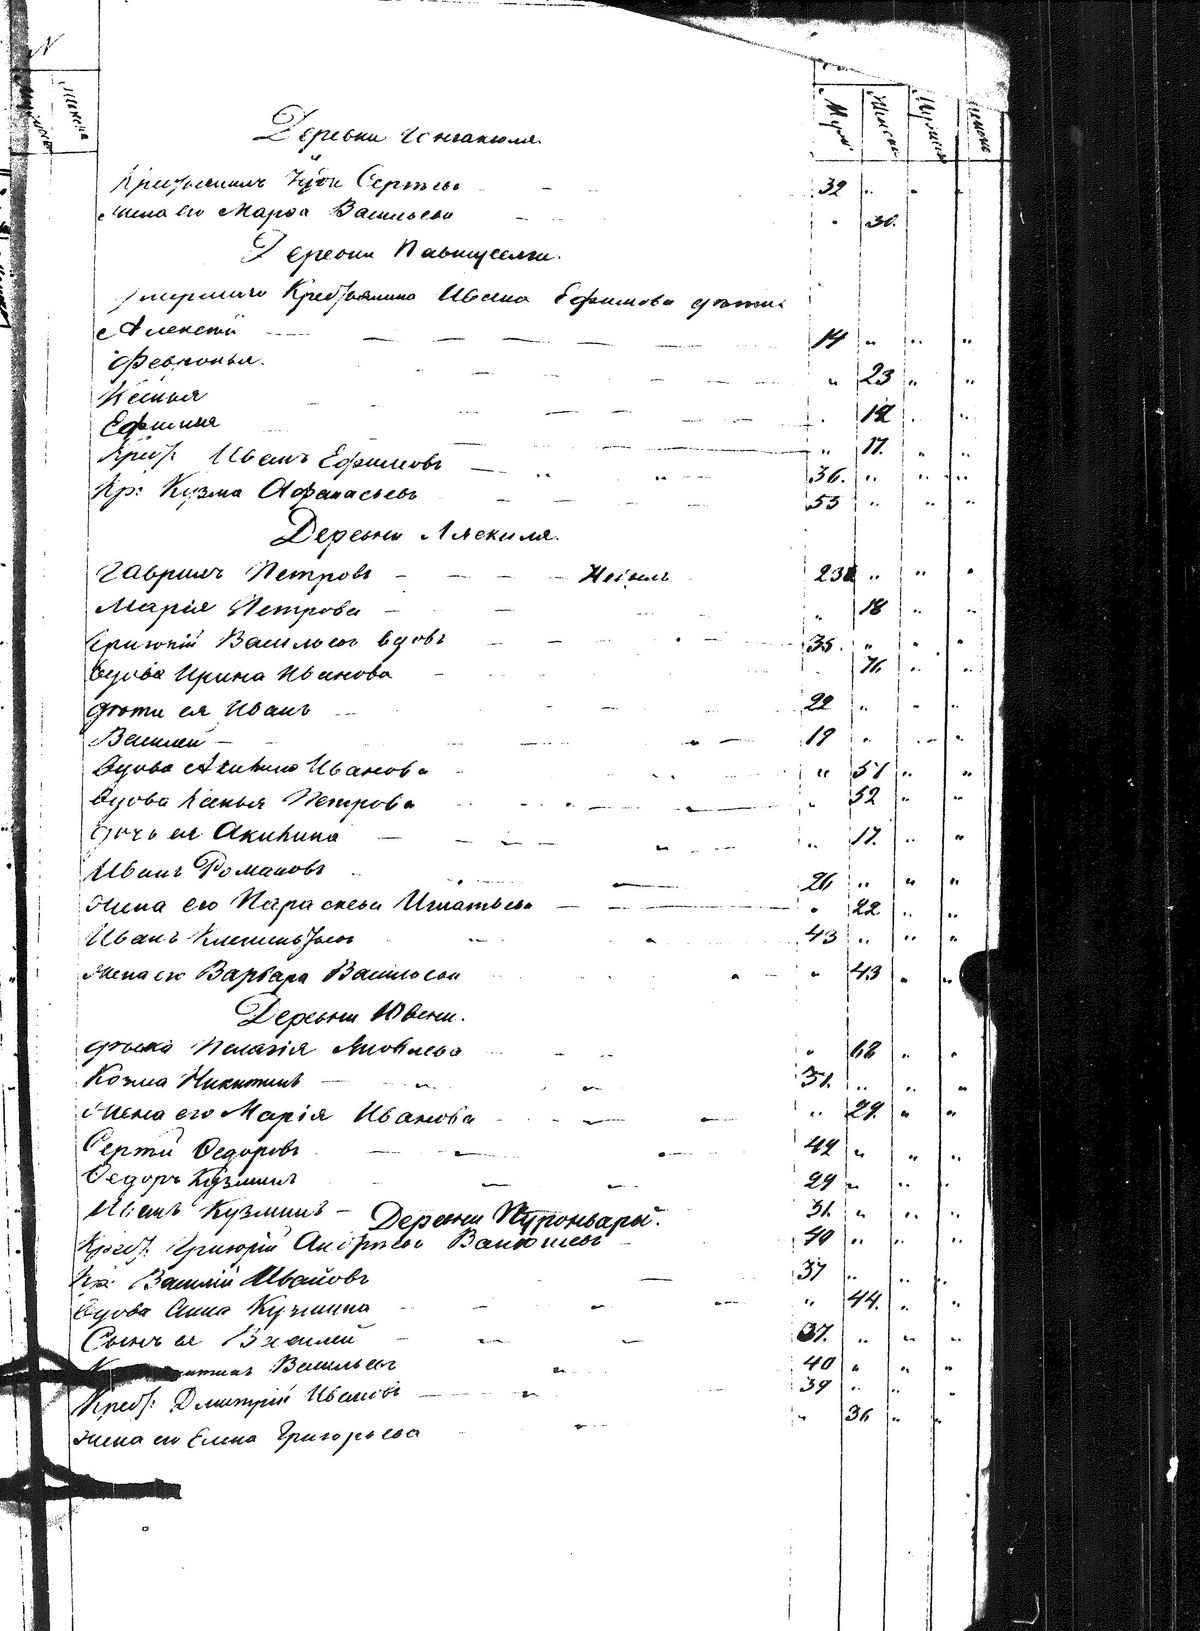 N
Женска
Муж. Женск. Мужеск. Женска
Деревни
Сергѣевъ 32
Жена его Марфа Васильева 30.
Деревни
Ивана Ефимова дѣти
Алексѣй 14
Февронья. 23
Ксенья 18
Ефимья 17.
Крест: Иванъ Ефимовъ 36.
Кр: Кузма Афанасьевъ 53
Деревни Ляскиля.
Гаврилъ Петровъ 23
Марія Петрова 18
Григорій Васильевъ вдовъ 35.
Вдова Ирина Иванова 76
дѣти ея Иванъ 22
Василей 19
Вдова Акилина Иванова 51
Вдова Ксенья Петрова 52
дочь ея Акилина 17.
Иванъ Романовъ 26
Жена его Параскева Игнатьева 22
Иванъ Клементьевъ 43
Жена его Варвара Васильева 43
Деревни
дѣвка Пелагія Яковлева 68
Козма Никитинъ 31.
Жена его Марія Иванова 29.
Сергѣй Ѳедоровъ 42
Ѳедоръ Кузминъ 29
Иванъ Кузминъ 31.
Деревни
Крест: Григорій Андрѣевъ 40
Кр: Василій Ивановъ 37
Вдова Анна Кузмина 44.
Сынъ ея Василей 37.
Васильевъ 40
Крест: Дмитрій Ивановъ 39
Жена его Елена Григорьева 36